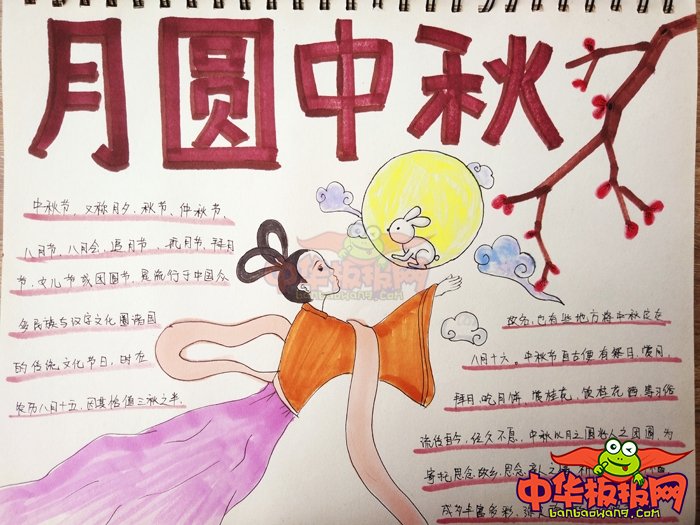 月圆中秋
中秋节，又称月夕、秋节、仲秋节、
八月节、八月会、追月节、玩月节、拜月
节、女儿节或团圆节，是流行于中国众
多民族与汉字文化圈诸国
的传统文化节日，时在
农历八月十五，因其恰值三秋之半，
故名，也有些地方将中秋节定在
八月十六。中秋节自古便有祭月、赏月、
拜月、吃月饼、赏桂花、饮桂花酒等习俗
流传至今，经久不息。中秋以月之圆兆人之团圆，为
寄托思念故乡，思念亲人之情，
成为丰富多彩、
中华板报网
banbaowang.com
中华板报网
banbaowang.com